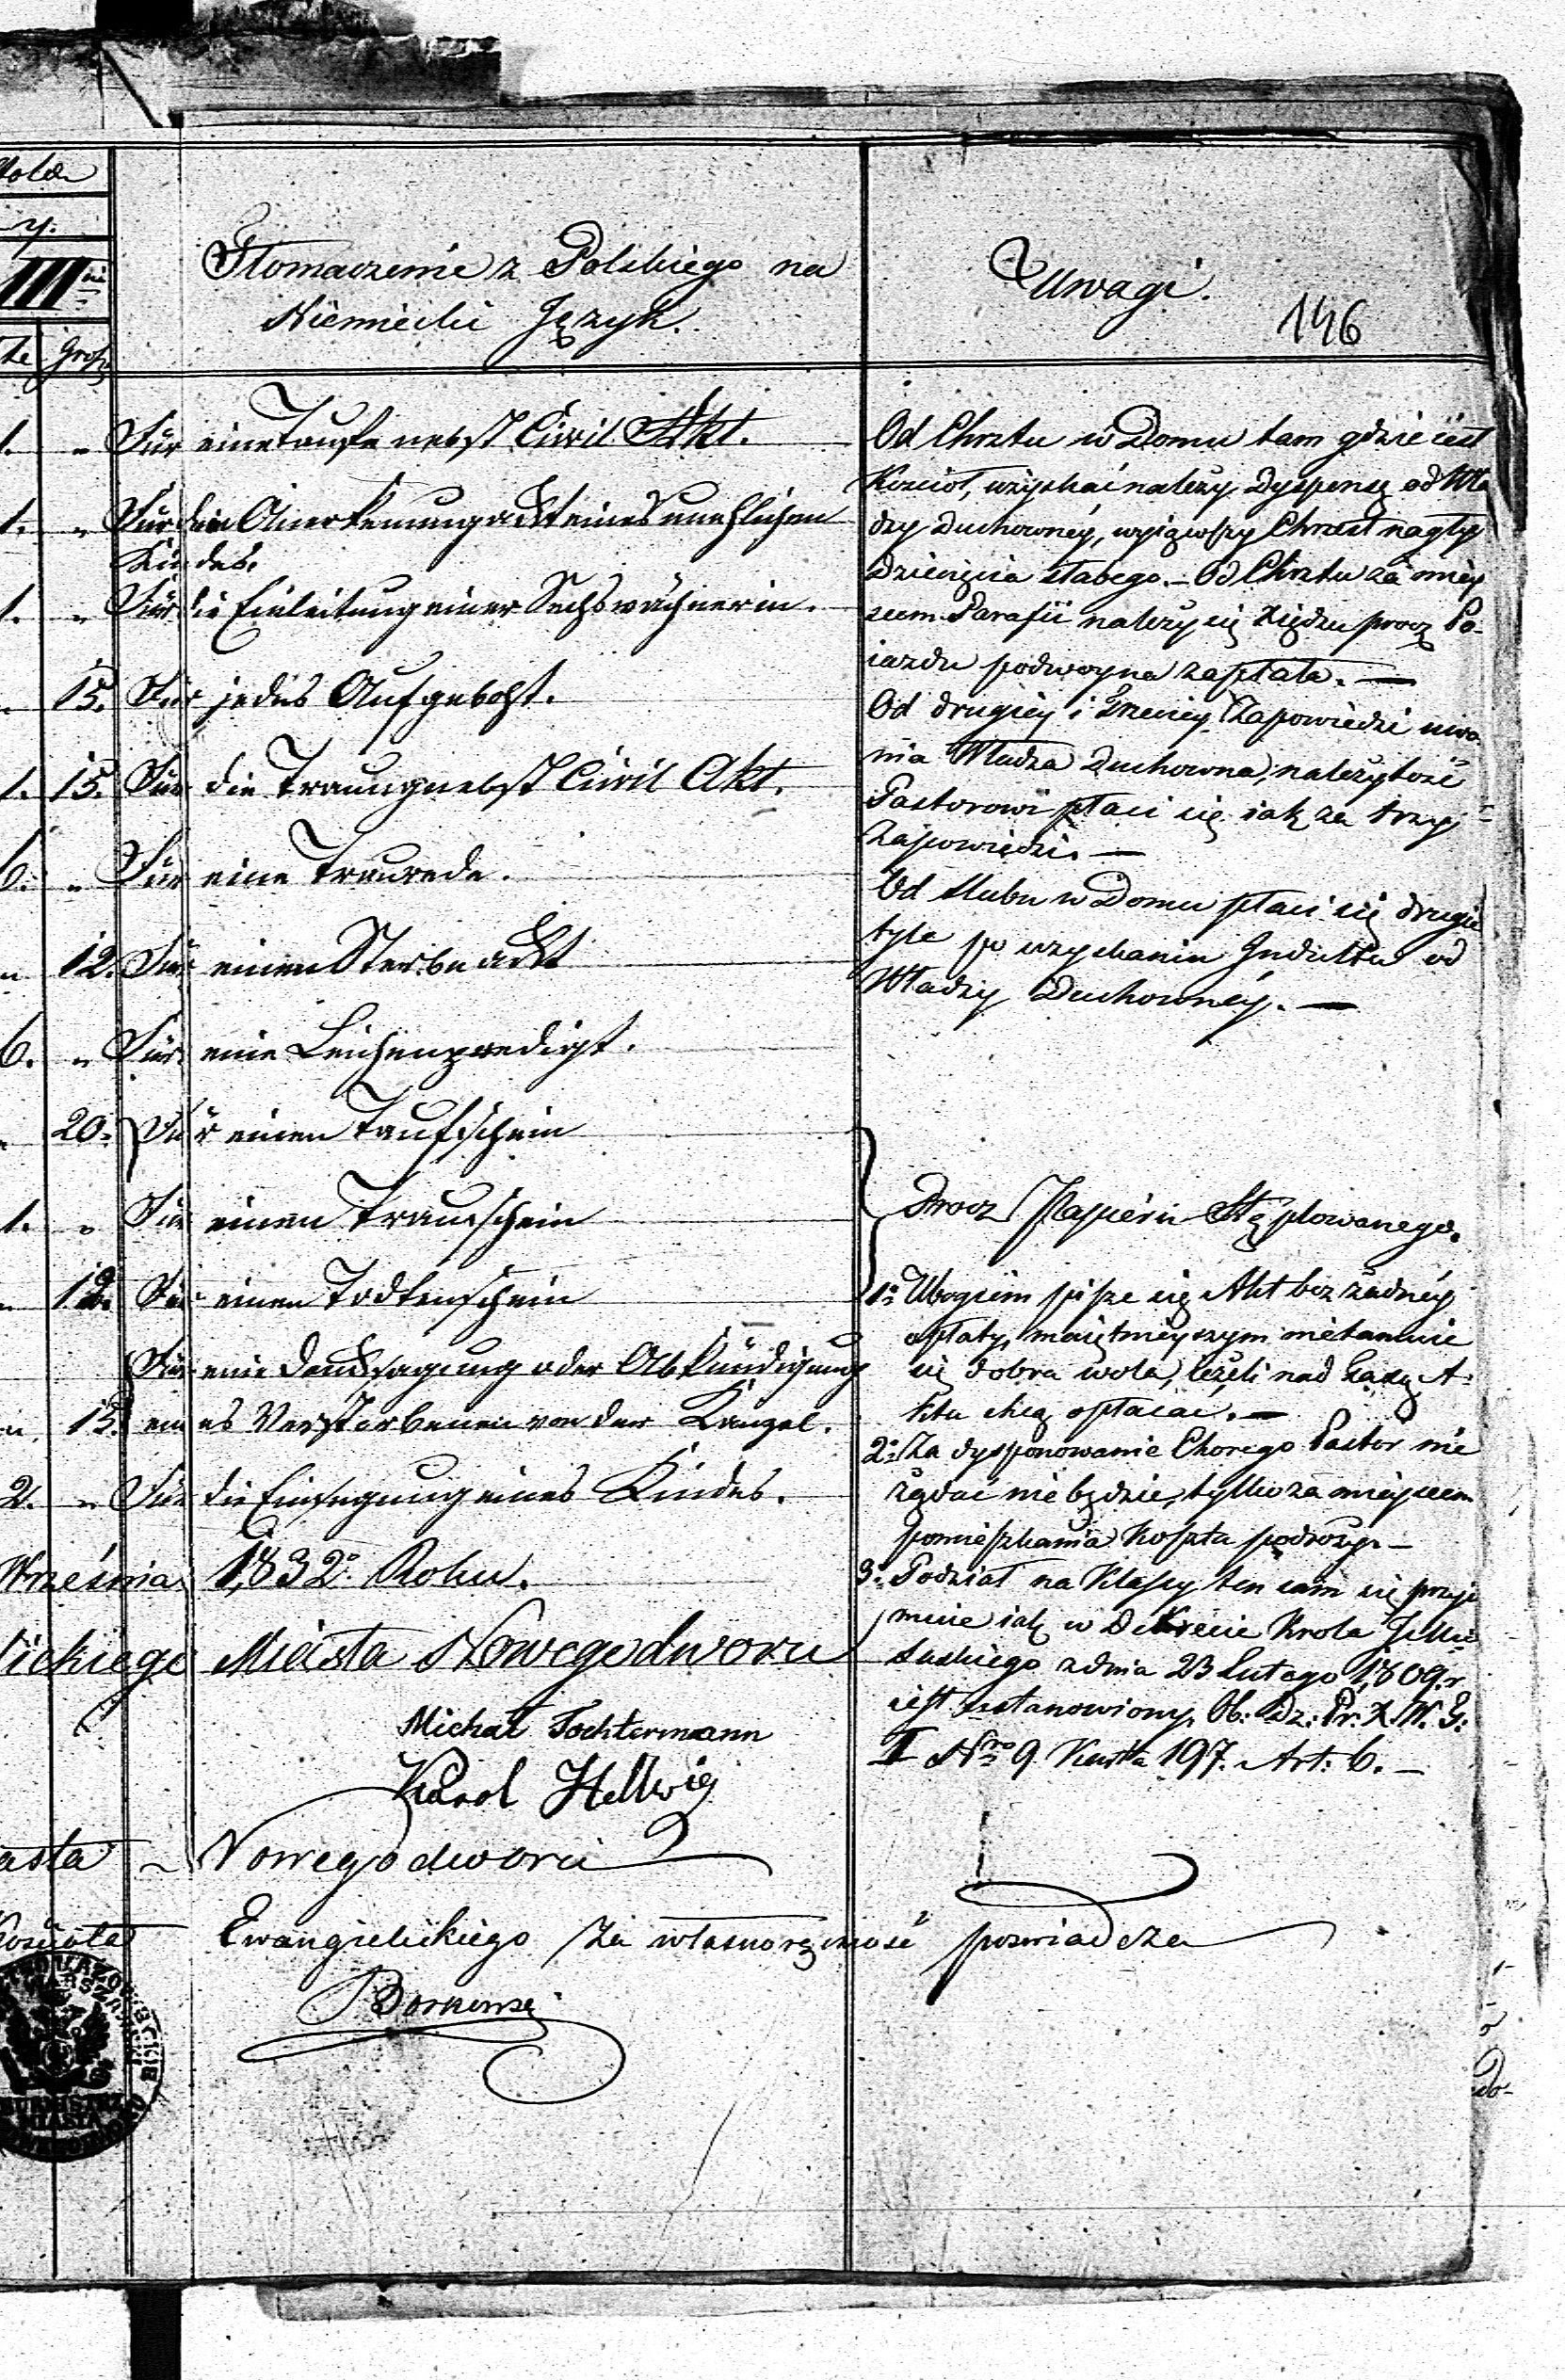 Tłomaczenie z Polskiego na
Niemiecki Język.
Uwagi.
146
IIIci
Grosz
1. " Für eine Taufe nebst Civil Akt.
1. " Für die Anerkennungsakt eines unehlichen
Kindes.
1. " Für die Einleitung einer Sechswöchnerin.
" 15. Für jedes Aufgeboht.
1. 15. Für die Trauung nebst Civil Akt.
6. " Für eine Traurede.
" 12. Für einen Sterbeackt
6. " Für eine Leichenpredigt.
" 20. Für einen Taufschein
1. " Für einen Trauschein
" 12. Für einen Todtenschein
Für eine Dancksagung oder Abkündigung
" 15. eines Verstorbenen von der Kanzel.
2. " Für die Einsegnung eines Kindes.
Września 1832o Roku.
Miasta Nowegodworu
Michał Tochtermann
Karol Hellwig
asta Nowegodworu
Kościoła Ewangielickiego za własnoręczność poswiadcza
Borkowski
Od Chrztu w Domu tam gdzie iest
Kościoł, uzyskać należy Dyspensę od Wła
dzy Duchownéy, wyiąwszy Chrzest nagły
Dziecięcia słabego. – Od Chrztu za miey
scem Parafii należy się Xiędzu procz Po-
iazdu podwoyna zapłata. —
Od drugiéy i trzeciéy Zapowiedzi uwa
nia Władza Duchowna; należytość
Pastorowi płaci się iak za trzy
Zapowiedzi. —
Od slubu w Domu płaci się drugie
tyle po uzyskaniu Indultu od
Władzy Duchownéy. —
Procz Papieru Stęplowanego.
1o Ubogiem pisze się Akt bez żadnéy
opłaty, maiętnieyszym nietamuie
się dobra wola, ieżeli nad Taxę A-
ktu chcą opłacać. —
2o Za dysponowanie Chorego Pastor nie
żądać nie będzie, tylko za mieyscem
pomieszkania koszta podroży. –
3o Podział na Klassy ten sam się przyi
muie iak w Dekrecie Krola JMci
Saskiego z dnia 23 Lutego 1809. r
iest ustanowiony. Ob: Dz: Pr: X. W. T:
I Nro 9 Karta 197. Art: 6. –